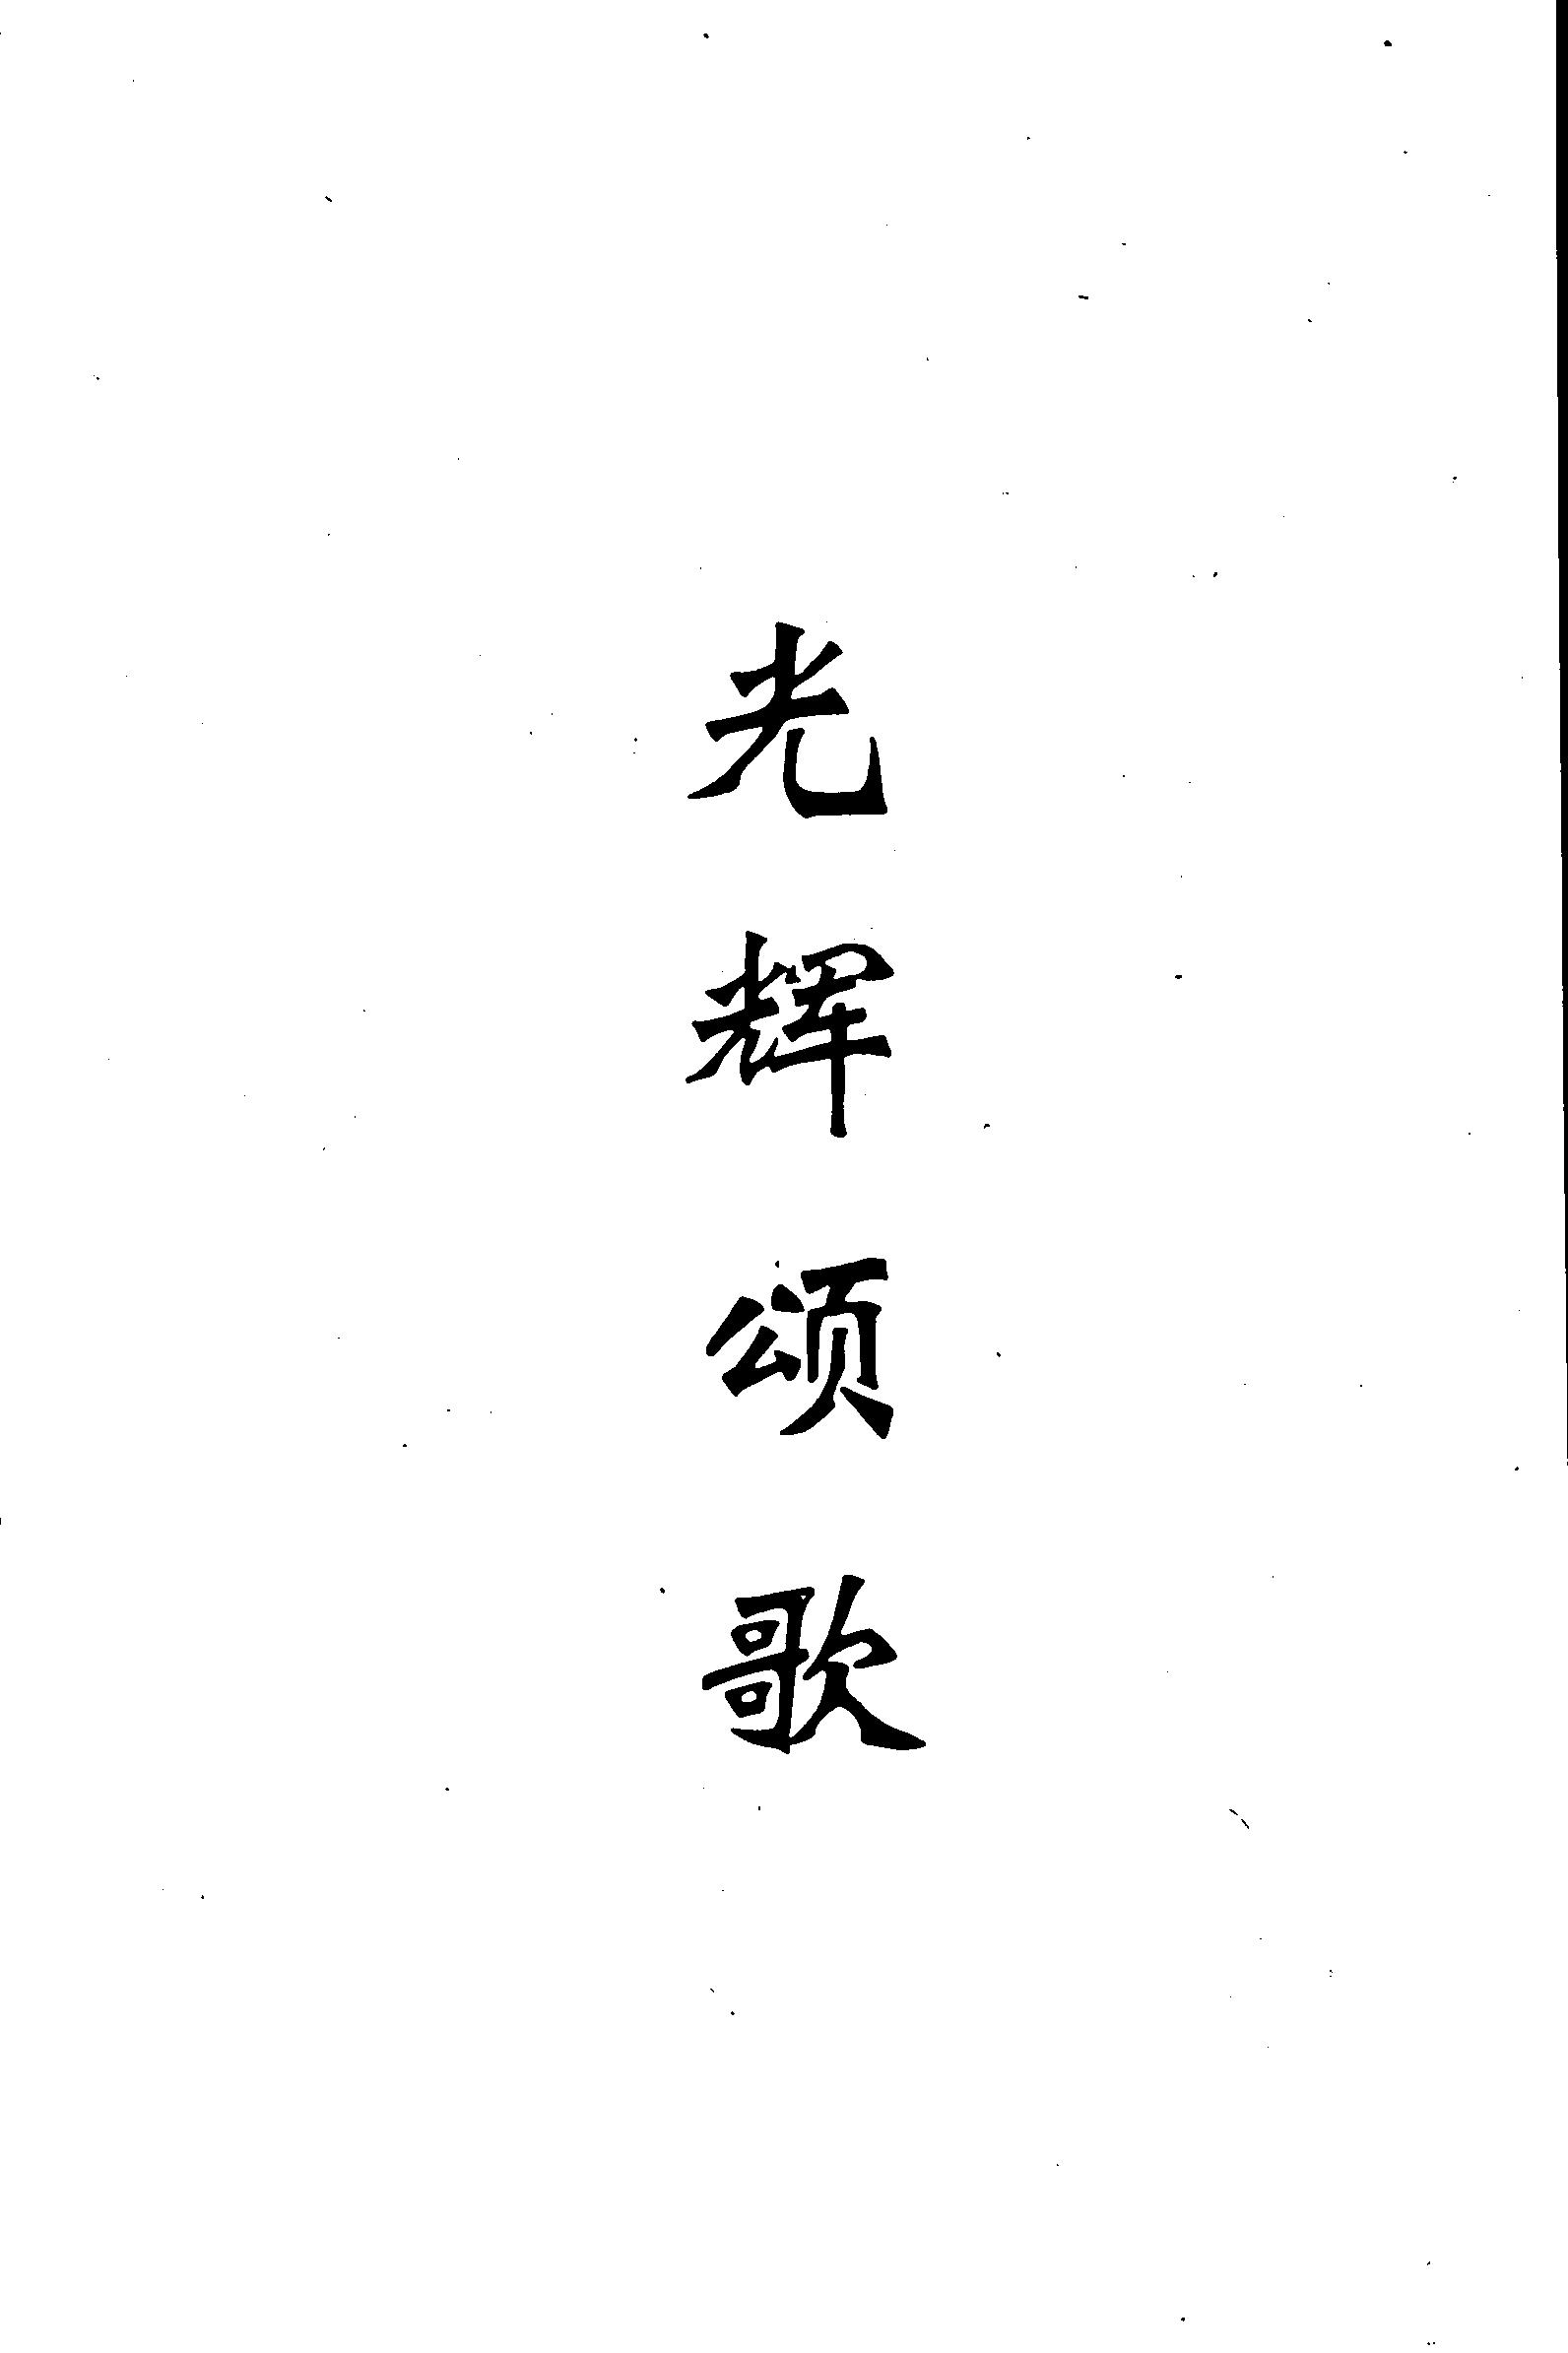 光辉颂歌